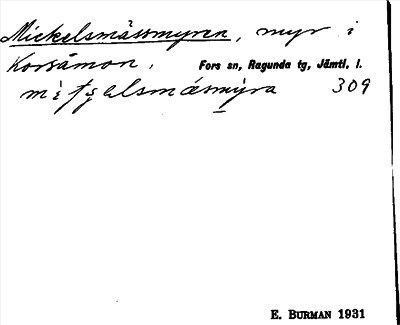 Mickelsmässmyren, myr i
Korsåmon, Fors sn, Ragunda tg, Jämtl. l.
309
E. BURMAN 1931